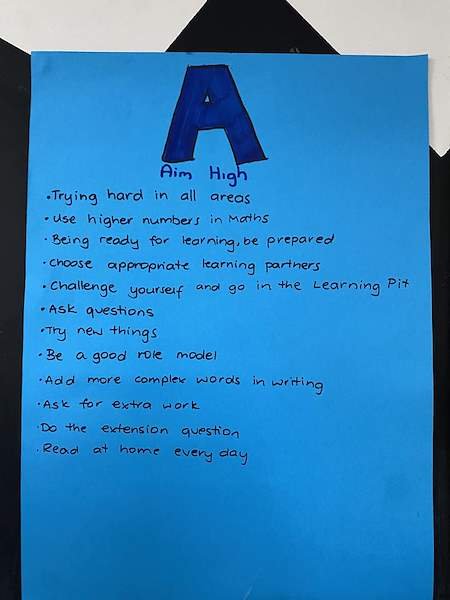 A
Aim High
•Trying hard in all areas
•Use higher numbers in Maths
•Being ready for learning, be prepared
•Choose appropriate learning partners
•Challenge yourself and go in the Learning Pit
•Ask questions
•Try new things
•Be a good role model
•Add more complex words in writing
•Ask for extra work
•Do the extension question
•Read at home every day